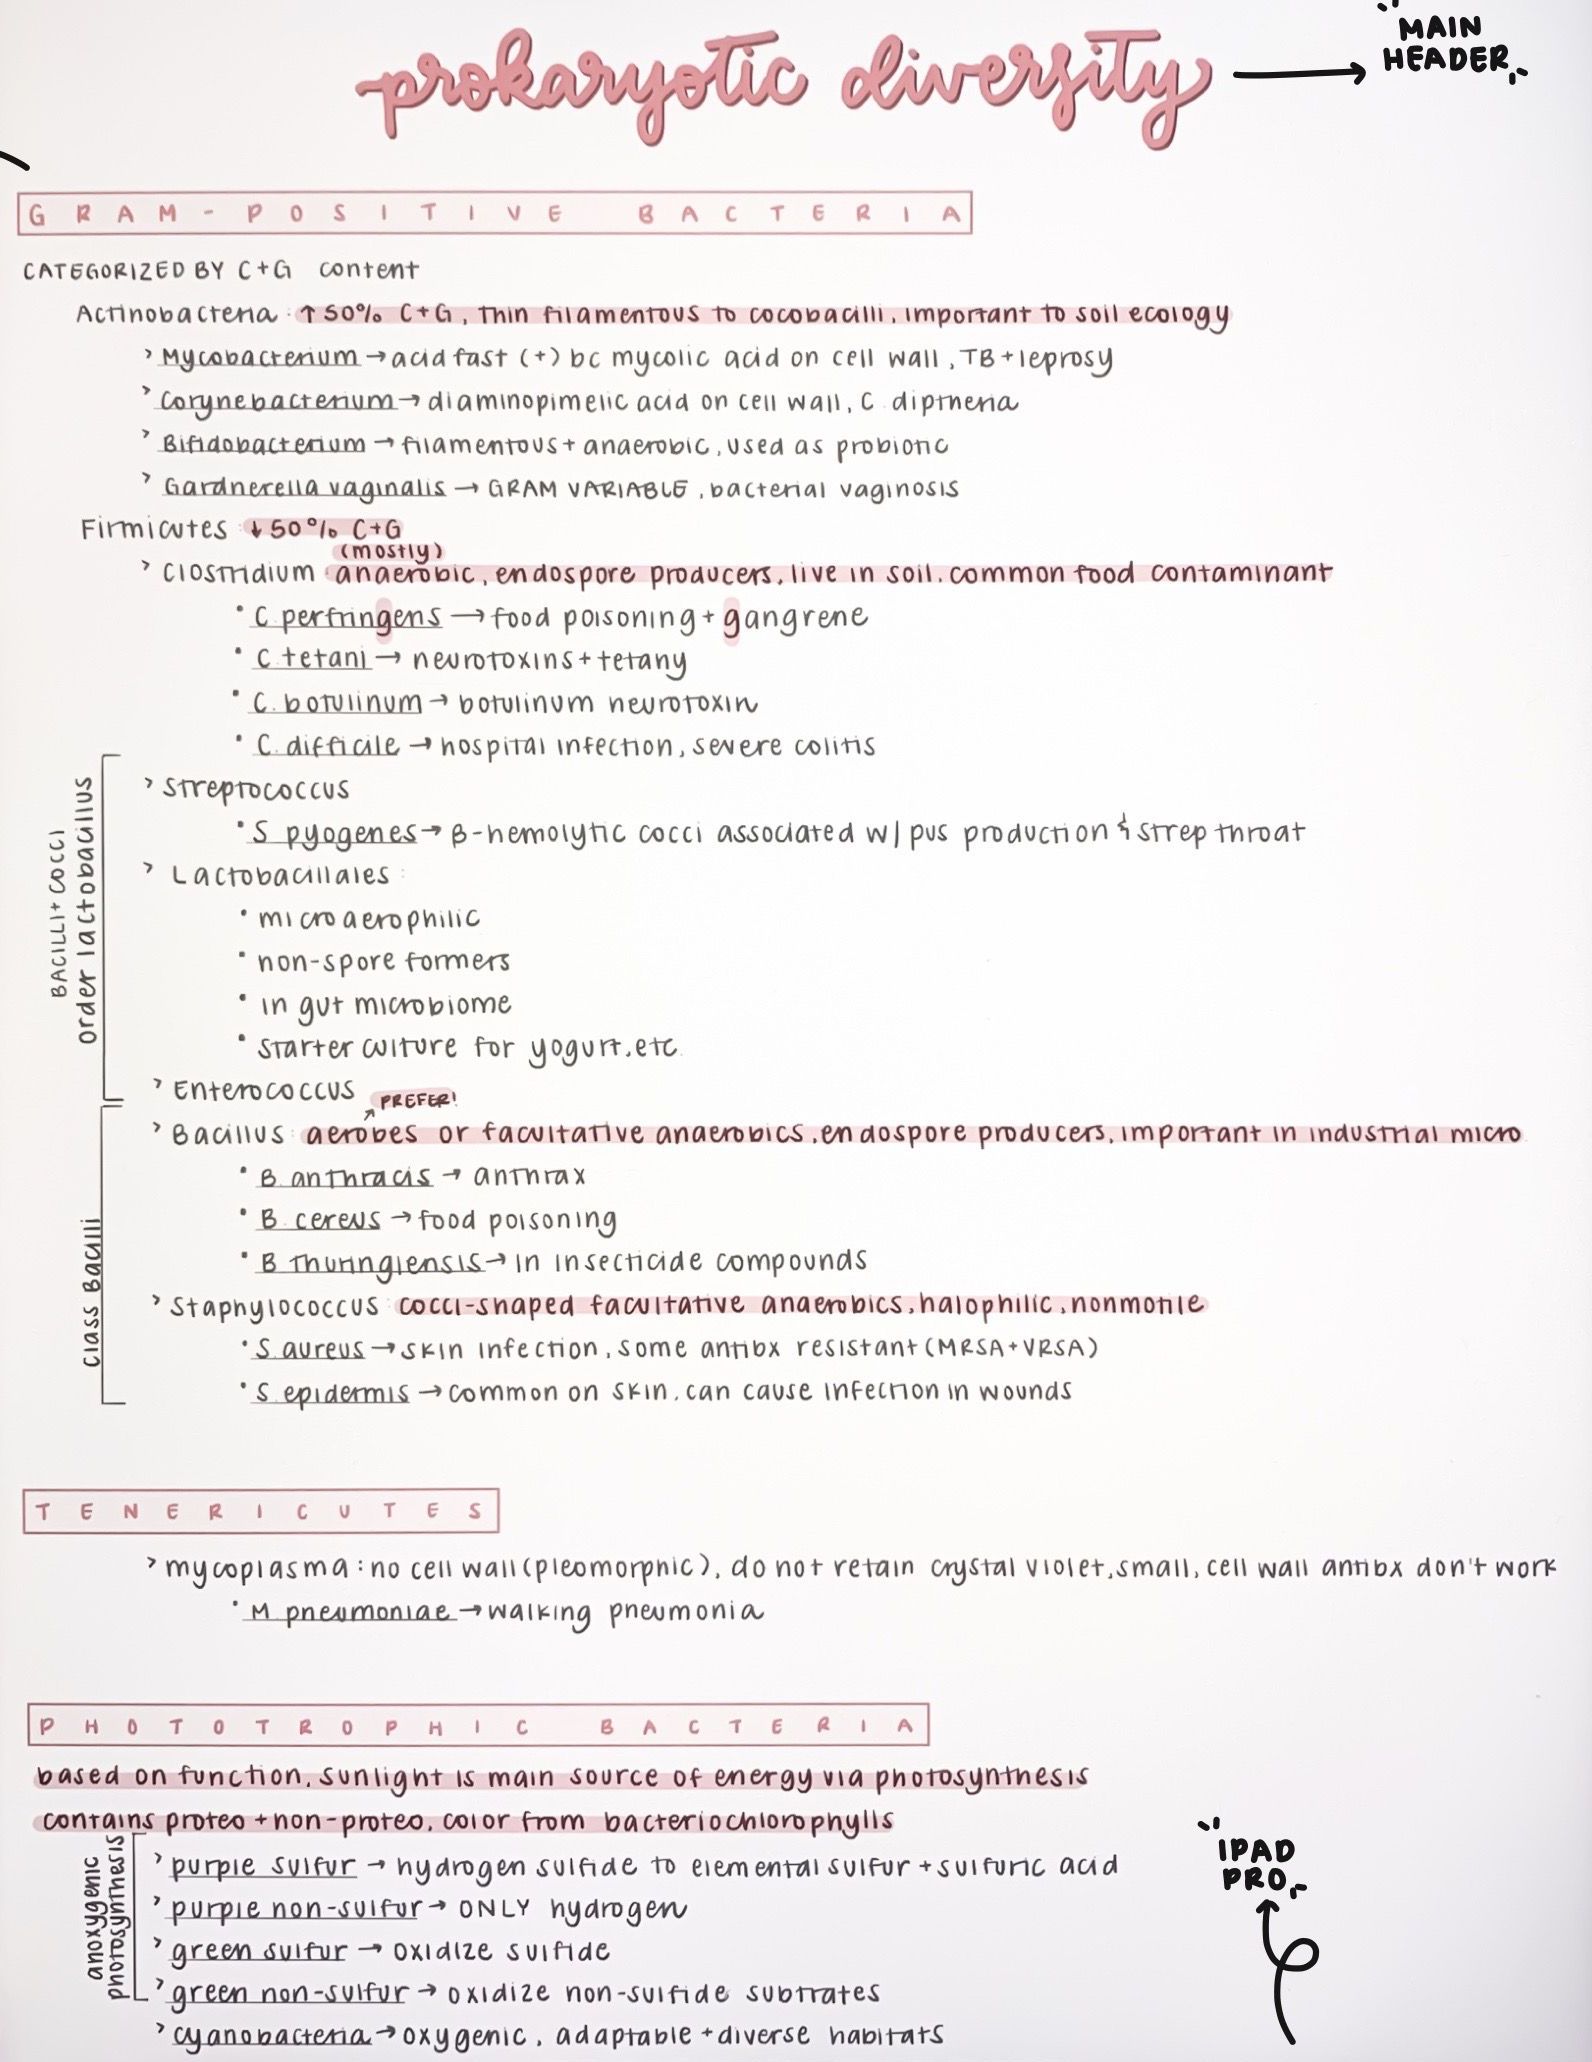 prokaryotic diversity
MAIN
HEADER
GRAM-POSITIVE BACTERIA
CATEGORIZED BY C+G content
Actinobacteria: ↑50% C+G, thin filamentous to cocobacilli, important to soil ecology
> Mycobacterium → acid fast (+) bc mycolic acid on cell wall, TB + leprosy
> Corynebacterium → diaminopimelic acid on cell wall, C. diptheria
> Bifidobacterium → filamentous + anaerobic, used as probiotic
> Gardnerella vaginalis → GRAM VARIABLE, bacterial vaginosis
Firmicutes: ↓50% C+G
(mostly)
> Clostridium: anaerobic, endospore producers, live in soil, common food contaminant
• C. perfringens → food poisoning + gangrene
• C. tetani → neurotoxins + tetany
• C. botulinum → botulinum neurotoxin
• C. difficile → hospital infection, severe colitis
BACILLI + COCCI
order lactobacillus
> Streptococcus
• S. pyogenes → β-hemolytic cocci associated w/ pus production & strep throat
> Lactobacillales:
• microaerophilic
• non-spore formers
• in gut microbiome
• starter culture for yogurt, etc.
> Enterococcus
PREFER!
Class Bacilli
> Bacillus: aerobes or facultative anaerobics, endospore producers, important in industrial micro
• B. anthracis → anthrax
• B. cereus → food poisoning
• B. thuringiensis → in insecticide compounds
> Staphylococcus: cocci-shaped facultative anaerobics, halophilic, nonmotile
• S. aureus → skin infection, some antibx resistant (MRSA + VRSA)
• S. epidermis → common on skin, can cause infection in wounds
TENERICUTES
> mycoplasma: no cell wall (pleomorphic), do not retain crystal violet, small, cell wall antibx don't work
• M. pneumoniae → walking pneumonia
PHOTOTROPHIC BACTERIA
based on function, sunlight is main source of energy via photosynthesis
contains proteo + non-proteo, color from bacteriochlorophylls
anoxygenic
photosynthesis
> purple sulfur → hydrogen sulfide to elemental sulfur + sulfuric acid
> purple non-sulfur → ONLY hydrogen
> green sulfur → oxidize sulfide
> green non-sulfur → oxidize non-sulfide subtrates
> cyanobacteria → oxygenic, adaptable + diverse habitats
IPAD
PRO